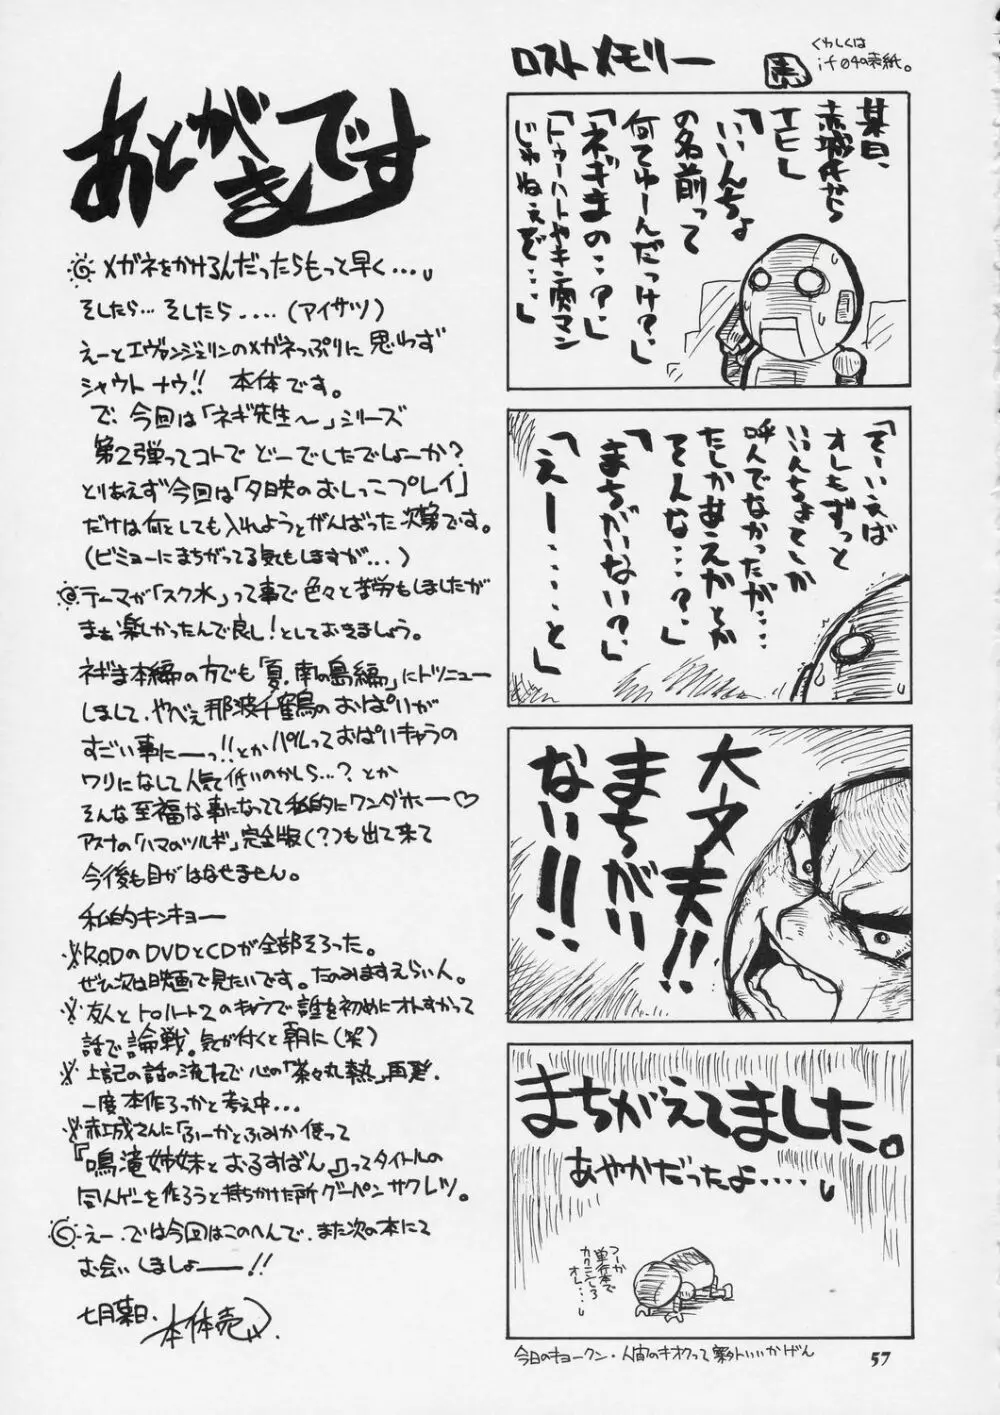 ロストメモリー
くわしくは
if04の表紙。
某日、
赤城氏から
TEL
「いいんちょ
の名前って
何てゆーんだっけ?」
「ネギまの・・?」
「トゥーハートやキン肉マン
じゃねぇぞ・・」
「そーいえば
オレもずっと
いいんちょとしか
呼んでなかったが・・・
たしかあえかとか
そんな・・・?」
「まちがいない?」
「えー・・・・と」
大丈夫!!
まちがい
ない!!!
まちがえてました。
あやかだったよ・・・・
つーか
単行本で
カクニンしろ
オレ・・・
今日のキョークン・人間のキオクって案外いいかげん
57
あとがきです
メガネをかけるんだったらもっと早く・・・
そしたら…そしたら....(アイサツ)
えーとエヴァンジェリンのメガネっぷりに思わず
シャウトナウ!! 本体です。
で、今回は「ネギ先生～」シリーズ
第2弾ってコトでどーでしたでしょーか?
とりあえず今回は「夕映のおしっこプレイ」
だけは何としても入れようとがんばった次第です。
(ビミョーにまちがってる気もしますが...)
テーマが「スク水」って事で色々と苦労もしましたが
まぁ楽しかったんで良し!としておきましょう。
ネギま本編の方でも「夏、南の島編」にトツニュー
しまして、やべぇ那波千鶴のおぱいが
すごい事にーっ!!とかパルっておぱいキャラの
ワリになして人気低いのかしら…?とか
そんな至福な事になってて私的にワンダホー♡
アスナの「ハマのツルギ」完全版(?)も出て来て
今後も目がはなせません。
私的キンキョー
※R.O.DのDVDとCDが全部そろった。
ぜひ次は映画で見たいです。たのみますえらい人。
※友人とToハート2のキャラで誰を初めにオトすかって
話で論戦。気が付くと朝に(笑)
※上記の話の流れで心の「茶々丸熱」再発。
一度本作ろっかと考え中...
※赤城さんに「ふーかとふみか使って
『鳴滝姉妹とおるすばん』」ってタイトルの
同人ゲーを作ろうと持ちかけた所グーペンサクレツ。
えー、では今回はこのへんで、また次の本にて
お会いしましょーーー!!
七月某日、本体売